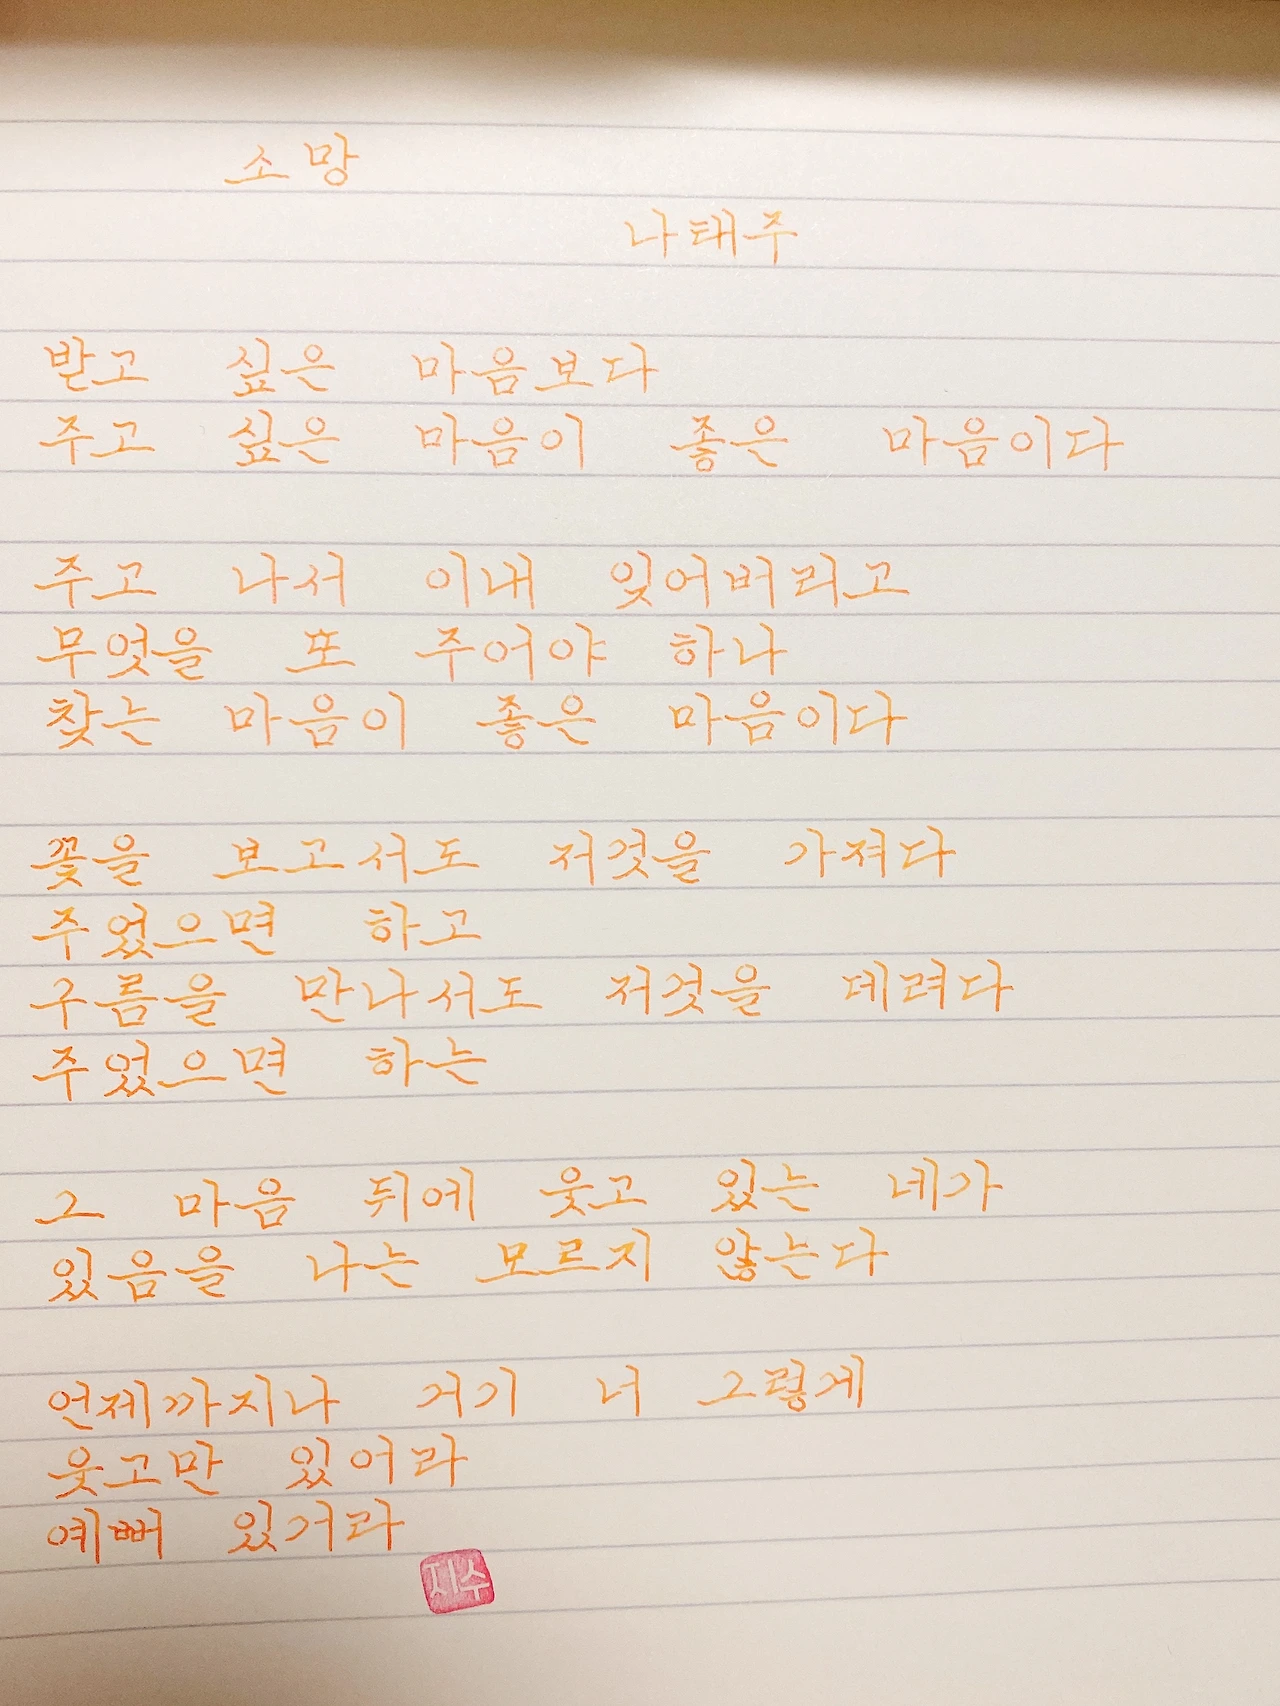 소망
나태주
받고 싶은 마음보다
주고 싶은 마음이 좋은 마음이다
주고 나서 이내 잊어버리고
무엇을 또 주어야 하나
찾는 마음이 좋은 마음이다
꽃을 보고서도 저것을 가져다
주었으면 하고
구름을 만나서도 저것을 데려다
주었으면 하는
그 마음 뒤에 웃고 있는 네가
있음을 나는 모르지 않는다
언제까지나 거기 너 그렇게
웃고만 있어라
예뻐 있거라
지수